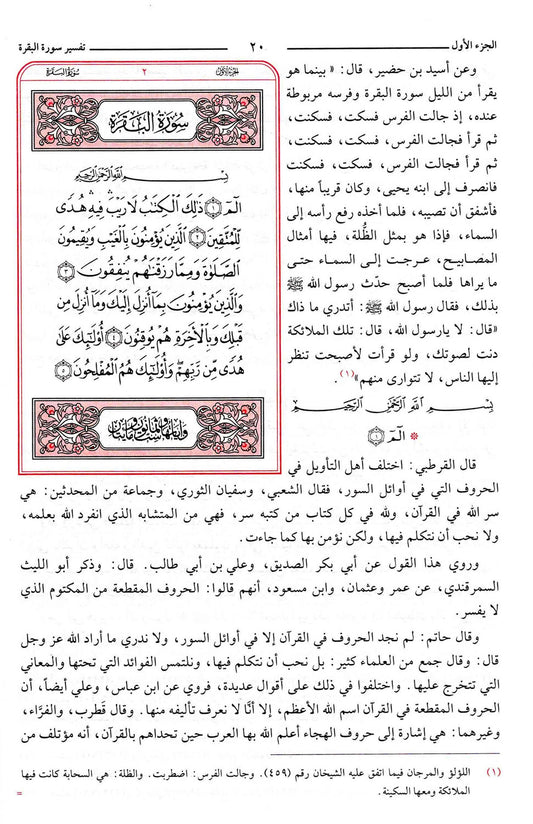 الجزء الأول
٢٠
تفسير سورة البقرة
وعن أسيد بن حضير، قال: «بينما هو
يقرأ من الليل سورة البقرة وفرسه مربوطة
عنده، إذ جالت الفرس فسكت، فسكنت،
ثم قرأ فجالت الفرس، فسكت، فسكنت
ثم قرأ فجالت الفرس، فسكت، فسكنت
فانصرف إلى ابنه يحيى، وكان قريباً منها،
فأشفق أن تصيبه، فلما أخذه رفع رأسه إلى
السماء، فإذا هو بمثل الظُّلة، فيها أمثال
المصابيح، عرجت إلى السماء حتى
ما يراها فلما أصبح حدّث رسول الله ﷺ
بذلك، فقال رسول الله ﷺ: أتدري ما ذاك
«قال: لا يارسول الله، قال: تلك الملائكة
دنت لصوتك، ولو قرأت لأصبحت تنظر
إليها الناس، لا تتوارى منهم»(١).
بِسْمِ اللَّهِ الرَّحْمَٰنِ الرَّحِيمِ
* الٓمٓ ۝١
الجزء الأول
٢
سورة البقرة
سُورَةُ البَقَرَةِ
بِسْمِ اللَّهِ الرَّحْمَٰنِ الرَّحِيمِ
الٓمٓ ۝١ ذَٰلِكَ ٱلْكِتَٰبُ لَا رَيْبَ ۛ فِيهِ ۛ هُدًى
لِّلْمُتَّقِينَ ۝٢ ٱلَّذِينَ يُؤْمِنُونَ بِٱلْغَيْبِ وَيُقِيمُونَ
ٱلصَّلَوٰةَ وَمِمَّا رَزَقْنَٰهُمْ يُنفِقُونَ ۝٣
وَٱلَّذِينَ يُؤْمِنُونَ بِمَآ أُنزِلَ إِلَيْكَ وَمَآ أُنزِلَ مِن
قَبْلِكَ وَبِٱلْءَاخِرَةِ هُمْ يُوقِنُونَ ۝٤ أُو۟لَٰٓئِكَ عَلَىٰ
هُدًى مِّن رَّبِّهِمْ ۖ وَأُو۟لَٰٓئِكَ هُمُ ٱلْمُفْلِحُونَ ۝٥
قال القرطبي: اختلف أهل التأويل في
الحروف التي في أوائل السور، فقال الشعبي، وسفيان الثوري، وجماعة من المحدثين: هي
سر الله في القرآن، ولله في كل كتاب من كتبه سر، فهي من المتشابه الذي انفرد الله بعلمه،
ولا نحب أن نتكلم فيها، ولكن نؤمن بها كما جاءت.
وروي هذا القول عن أبي بكر الصديق، وعلي بن أبي طالب. قال: وذكر أبو الليث
السمرقندي، عن عمر وعثمان، وابن مسعود، أنهم قالوا: الحروف المقطعة من المكتوم الذي
لا يفسر.
وقال حاتم: لم نجد الحروف في القرآن إلا في أوائل السور، ولا ندري ما أراد الله عز وجل
قال: وقال جمع من العلماء كثير: بل نحب أن نتكلم فيها، ونلتمس الفوائد التي تحتها والمعاني
التي تتخرج عليها. واختلفوا في ذلك على أقوال عديدة، فروي عن ابن عباس، وعلي أيضاً، أن
الحروف المقطعة في القرآن اسم الله الأعظم، إلا أنَّا لا نعرف تأليفه منها. وقال قَطرب، والفرَّاء،
وغيرهما: هي إشارة إلى حروف الهجاء أعلم الله بها العرب حين تحداهم بالقرآن، أنه مؤتلف من
(١) اللؤلؤ والمرجان فيما اتفق عليه الشيخان رقم (٤٥٩). وجالت الفرس: اضطربت. والظلة: هي السحابة كانت فيها
الملائكة ومعها السكينة.
=